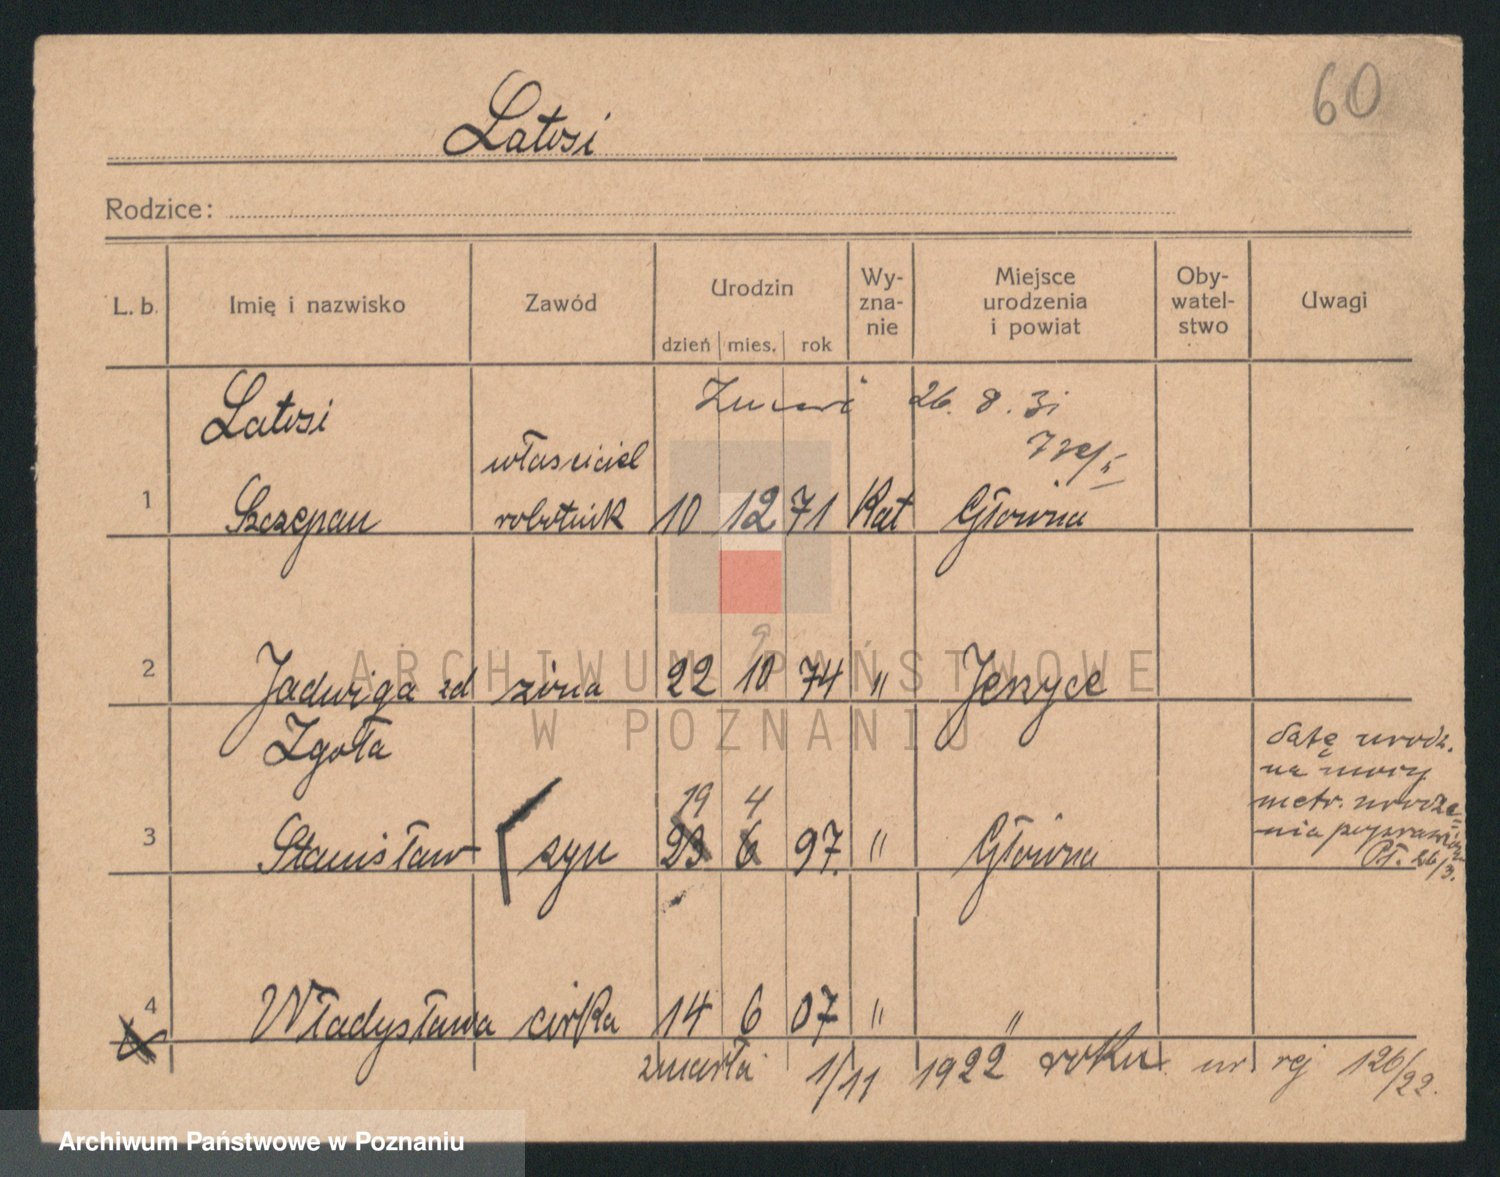 60
Latosi
Rodzice:
L. b. Imię i nazwisko Zawód Urodzin Wy-zna-nie Miejsce urodzenia i powiat Oby-watel-stwo Uwagi
dzień mies. rok
26. 8. 31
Latosi
właściciel
1 Szczepan robotnik 10 12 71 Kat Główna
9
2 Jadwiga zd żona 22 10 74 " Jeżyce
Zgoła
datę urodz.
na mocy
metr. urodze-
nia
19 4
3 Stanisław syn 23 6 97. " Główna
26/3.
4 Władysława córka 14 6 07 " "
zmarła 1/11 1922 roku nr. rej 126/22.
ARCHIWUM PAŃSTWOWE
W POZNANIU
Archiwum Państwowe w Poznaniu